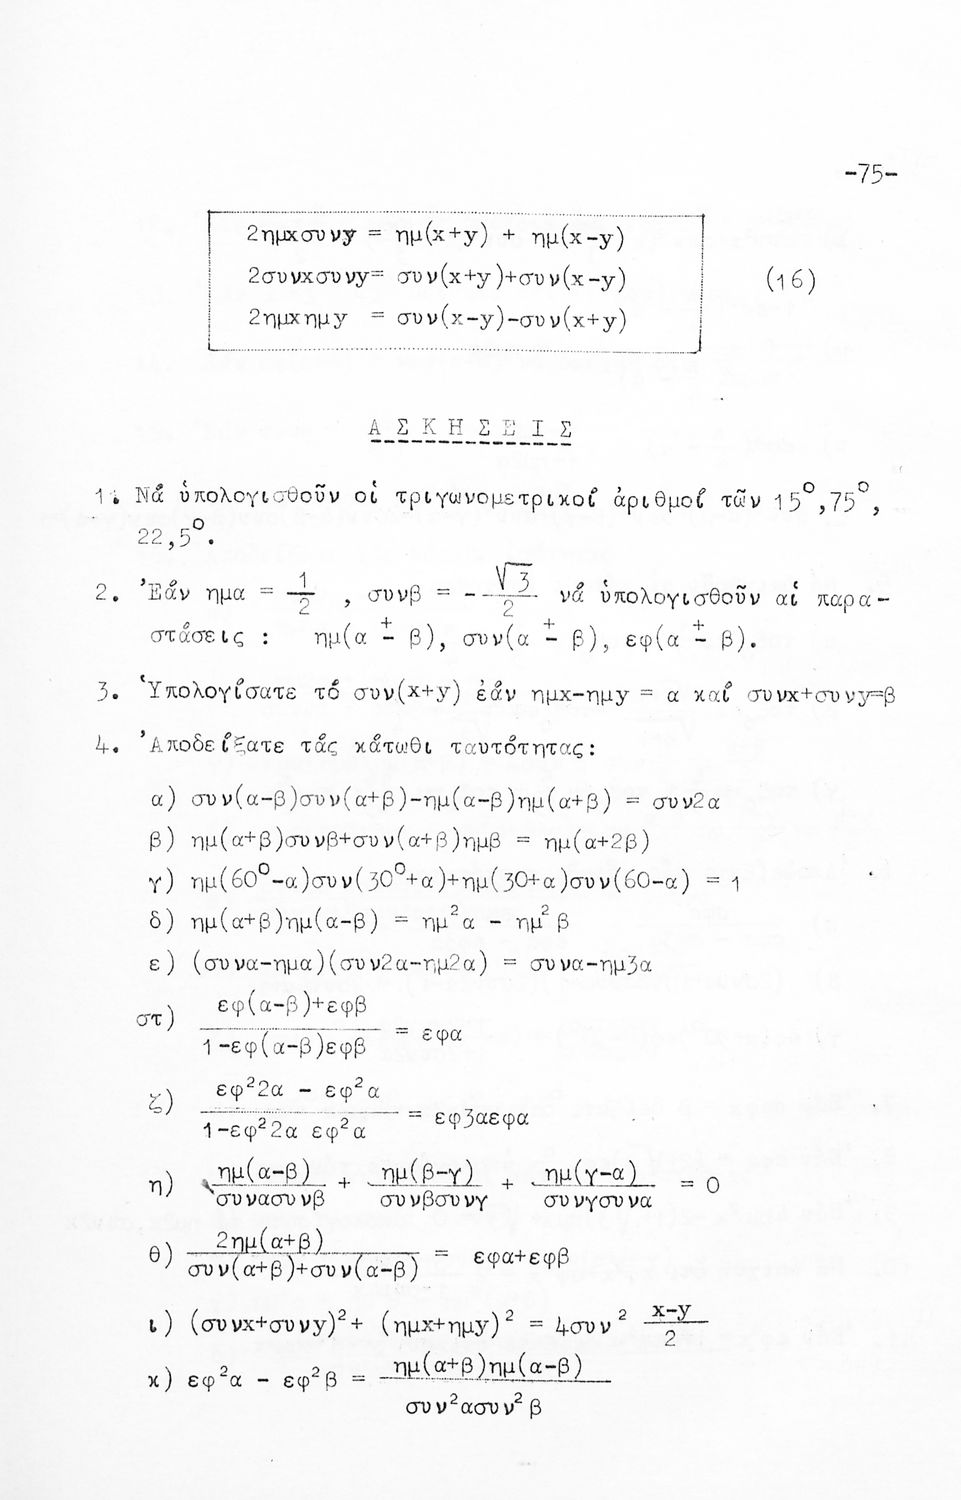 -75-
2ημxσυνy = ημ(x+y) + ημ(x-y)
2συνxσυνy= συν(x+y)+συν(x-y) (16)
2ημxημy = συν(x-y)-συν(x+y)
ΑΣΚΗΣΕΙΣ
1. Νά ὑπολογισθοῦν οἱ τριγωνομετρικοί ἀριθμοί τῶν 15⁰,75⁰,
22,5⁰.
2. Ἐάν ημα = 1/2 , συνβ = -√3/2 νά ὑπολογισθοῦν αἱ παρα-
στάσεις : ημ(α ± β), συν(α ± β), εφ(α ± β).
3. Ὑπολογίσατε τό συν(x+y) ἐάν ημx-ημy = α καί συνx+συνy=β
4. Ἀποδείξατε τάς κάτωθι ταυτότητας:
α) συν(α-β)συν(α+β)-ημ(α-β)ημ(α+β) = συν2α
β) ημ(α+β)συνβ+συν(α+β)ημβ = ημ(α+2β)
γ) ημ(60⁰-α)συν(30⁰+α)+ημ(30+α)συν(60-α) = 1
δ) ημ(α+β)ημ(α-β) = ημ²α - ημ²β
ε) (συνα-ημα)(συν2α-ημ2α) = συνα-ημ3α
στ) εφ(α-β)+εφβ / 1-εφ(α-β)εφβ = εφα
ζ) εφ²2α - εφ²α / 1-εφ²2α εφ²α = εφ3αεφα
η) ημ(α-β)/συνασυνβ + ημ(β-γ)/συνβσυνγ + ημ(γ-α)/συνγσυνα = 0
θ) 2ημ(α+β) / συν(α+β)+συν(α-β) = εφα+εφβ
ι) (συνx+συνy)²+ (ημx+ημy)² = 4συν² x-y/2
κ) εφ²α - εφ²β = ημ(α+β)ημ(α-β) / συν²ασυν²β